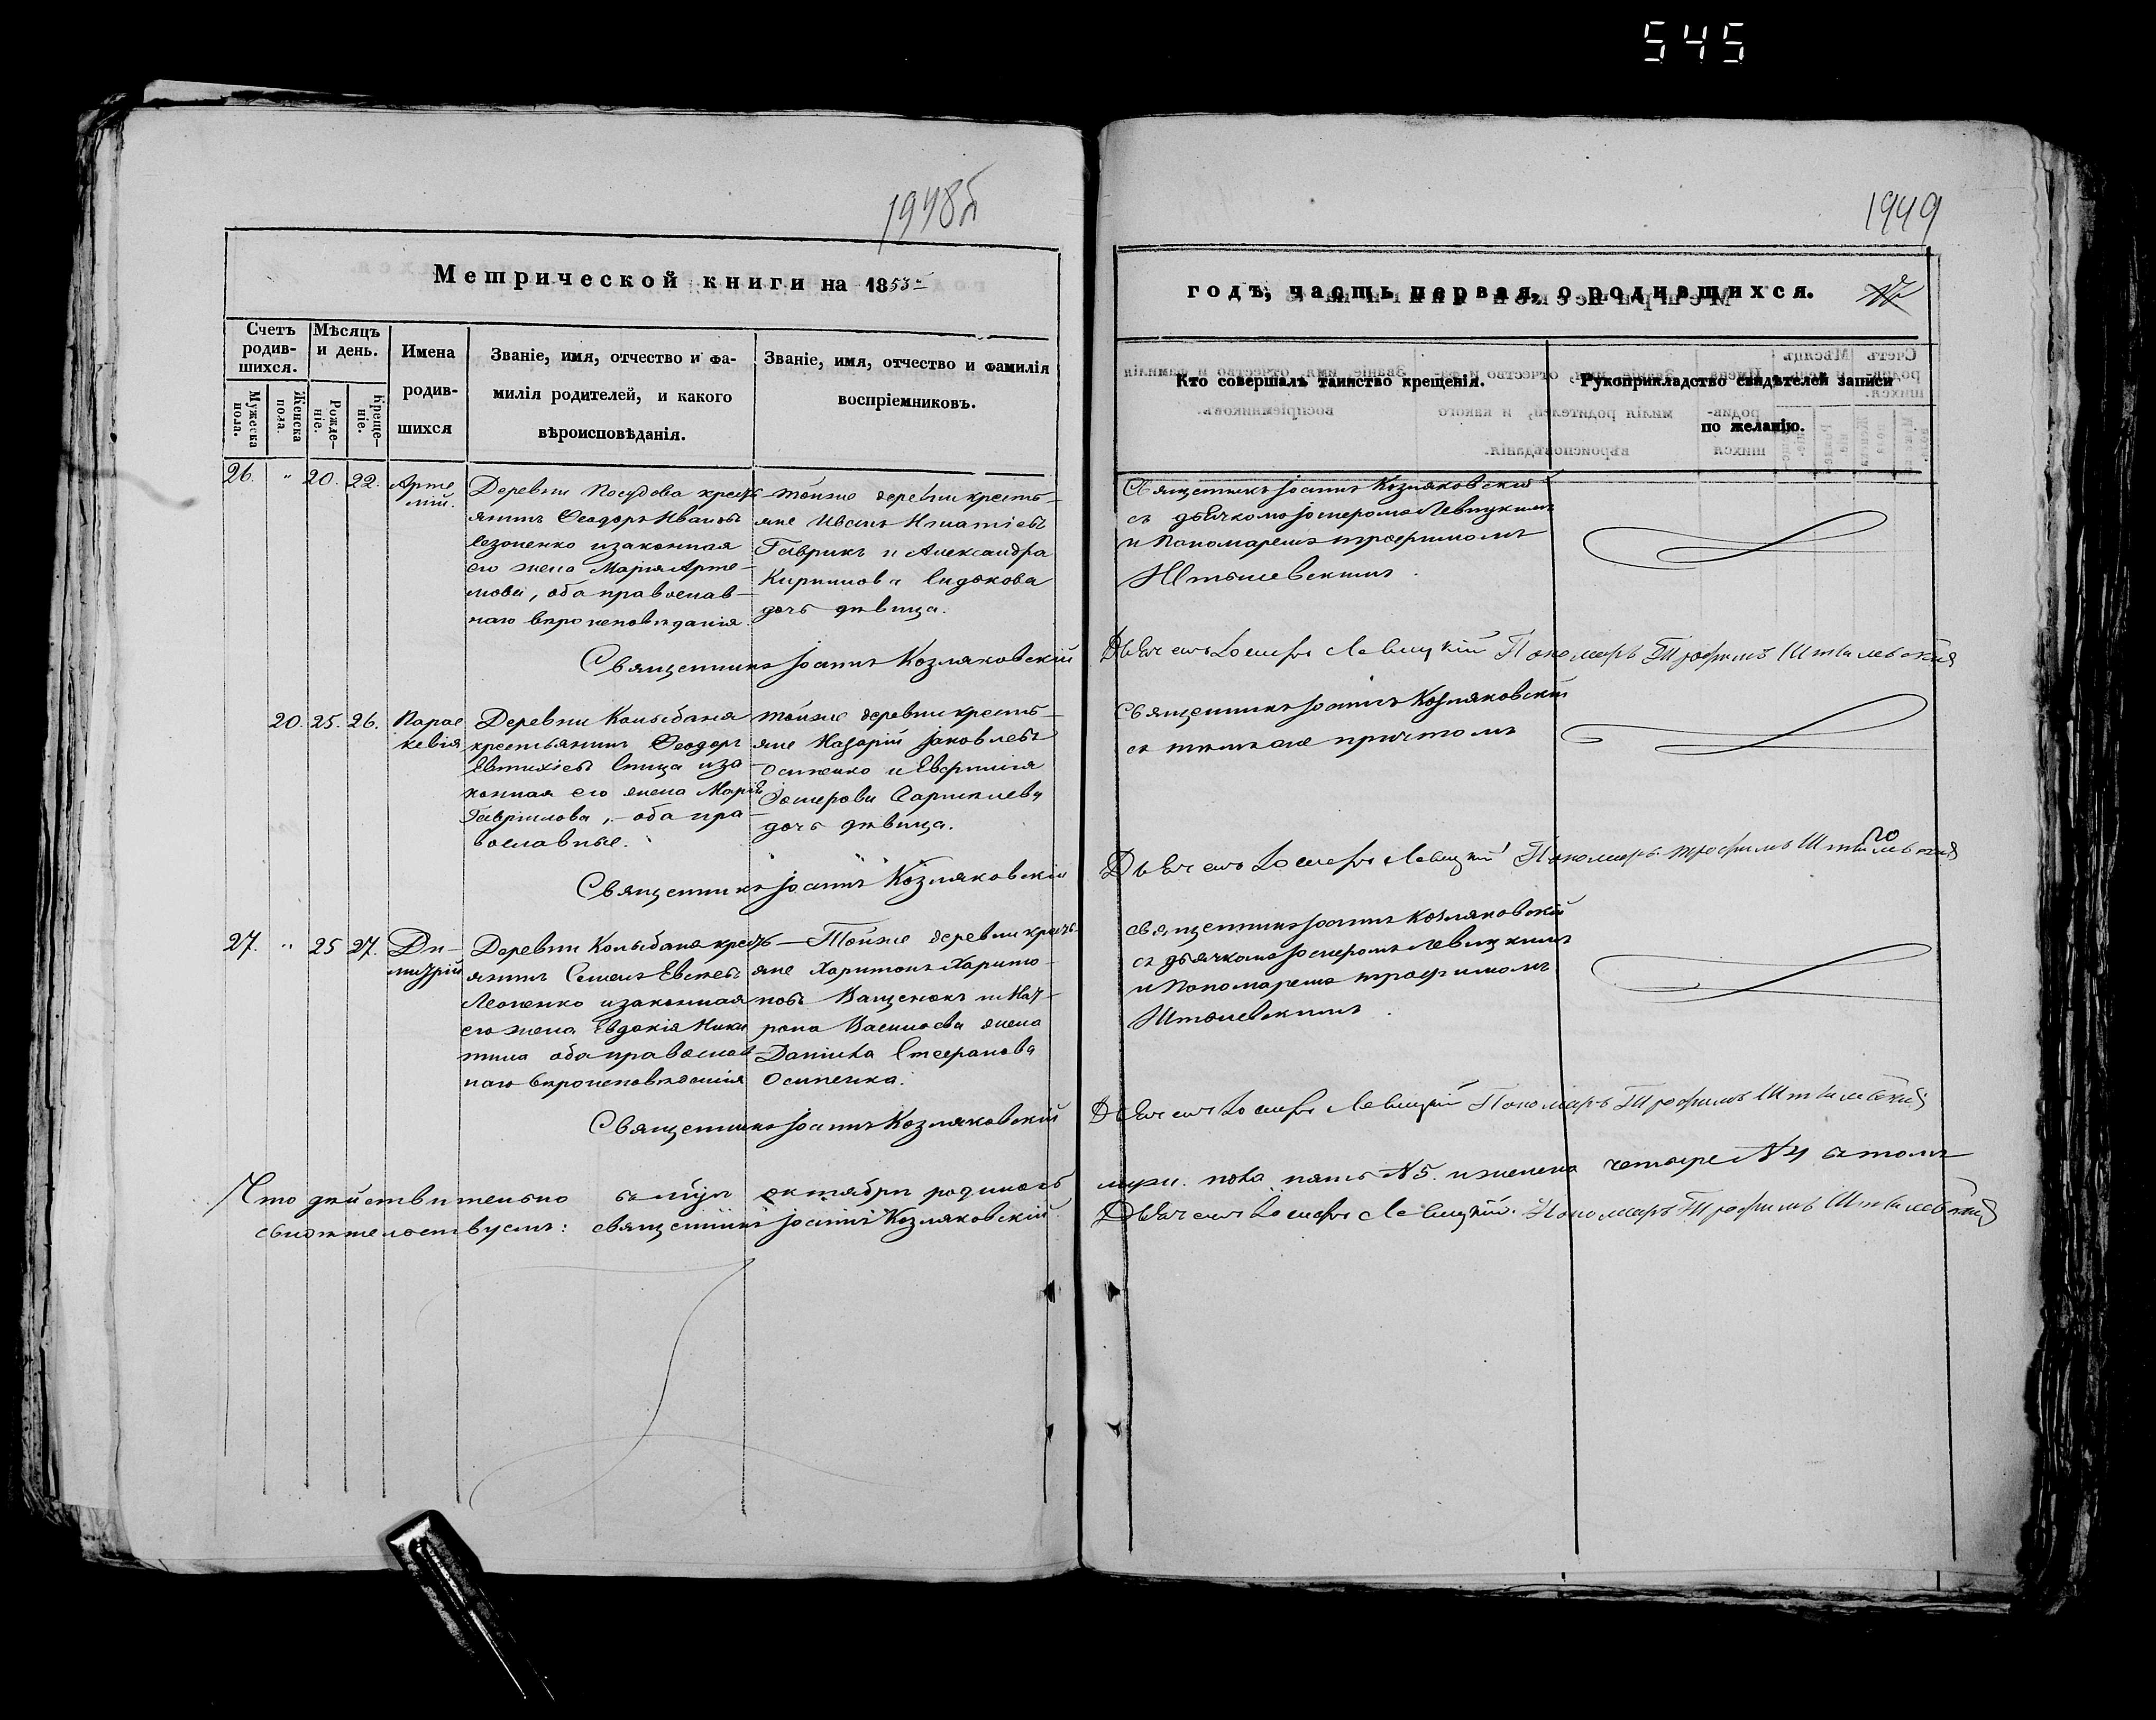 545
1948б
1949
Метрической книги на 1853й
годъ, часть первая, о родившихся.
Счетъ родив-шихся.
Мужеска пола.
Женска пола.
Мѣсяцъ и день.
Рожде-ніе.
Креще-ніе.
Имена
родив-
шихся
Званіе, имя, отчество и фа-
милія родителей, и какого
вѣроисповѣданія.
Званіе, имя, отчество и фамилія
воспріемниковъ.
Кто совершалъ таинство крещенія.
Рукоприкладство свидѣтелей записи
по желанію.
26. " 20. 22.
Арте
мій.
Деревни Посудова кресть
янинъ Ѳеодоръ Ивановъ
и законная
его жена Марія Арте-
мова, оба православ-
наго вѣроисповѣданія.
тойже деревни кресть-
яне Иванъ Игнатіевъ
Гаврикъ и Александра
Кириллова Сидякова
дочь дѣвица.
Священникъ Іоаннъ Козляковскій
съ дьячкомъ Іосифомъ Левицкимъ
и Пономаремъ Трофимомъ
Штылевскимъ.
Священникъ Іоаннъ Козляковскій
Дьячекъ Іосифъ Левицкій Пономарь Трофимъ Штылевскій
20. 25. 26.
Парас
кевія
Деревни Колыбаня
крестьянинъ Ѳеодоръ
Евтихіевъ Спица и за-
конная его жена Марія
Гаврилова, оба пра-
вославные.
тойже деревни кресть-
яне Назарій Іаковлевъ
Осипенко и Евфимія
дочь дѣвица.
Священникъ Іоаннъ Козляковскій
съ тѣмъ же причтомъ
Священникъ Іоаннъ Козляковскій
Дьячекъ Іосифъ Левицкій Пономарь Трофимъ Штылевскій
27. " 25 27.
Ди-
митрій
Деревни Колыбаня кресть-
янинъ Семенъ Евсѣевъ
Леоненко и законная
его жена Евдокія Ники
тина оба православ
наго вѣроисповѣданія
Тойже деревни кресть
яне Харитонъ Харито-
новъ Ващенокъ и Мат-
рона Василіева жена
Даніила Стефанова
Осипенка.
священникъ Іоаннъ Козляковскій
съ дьячкомъ Іосифомъ Левицкимъ
и Пономаремъ Трофимомъ
Штылевскимъ.
Священникъ Іоаннъ Козляковскій
Дьячекъ Іосифъ Левицкій Пономарь Трофимъ Штылевскій
Что дѣйствительно въ октябрѣ родилось
муж. пола пять №5. и женска четыре №4 въ томъ
свидѣтельствуемъ: священникъ Іоаннъ Козляковскій
Дьячекъ Іосифъ Левицкій. Пономарь Трофимъ Штылевскій